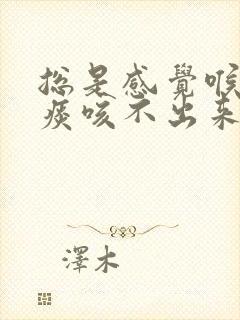 總是感覺喉
痰咳不出来
澤木